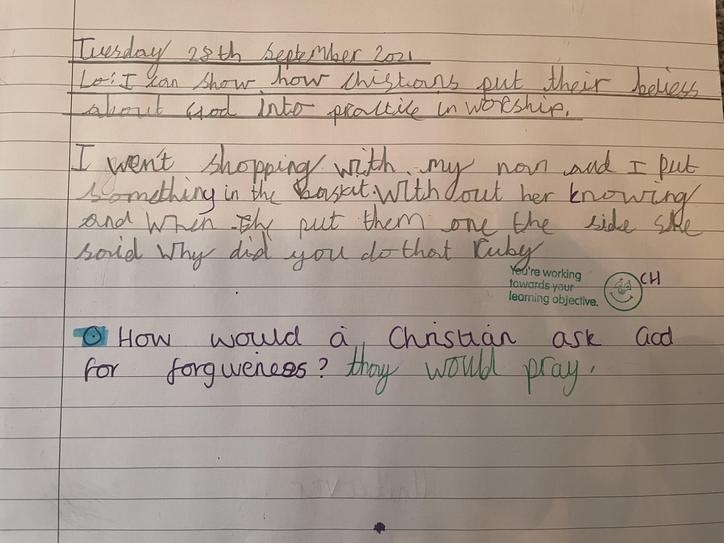 Tuesday 28th September 2021
Lo: I can show how chistians put their beliess
about God into practice in worship.
I went shopping with my nan and I put
something in the baskit. With out her knowing
and when I put them one the side she
said why did you do that Ruby
You're working
towards your
learning objective.
CH
How would a Christian ask God
for forgiveness? they would pray.